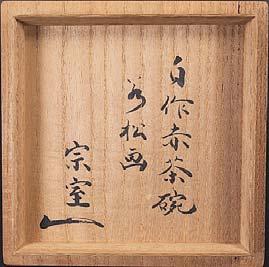 自作赤茶碗
若松画
宗室